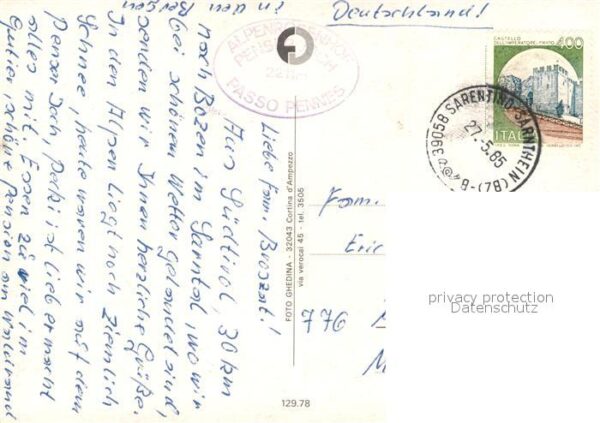 Deutschland!
in den Bergen
Liebe Fam. Broszat!
Aus Südtirol, 30 km
nach Bozen im Sarntal, wo wir
bei schönem Wetter gelandet sind,
senden wir Ihnen herzliche Grüße.
In den Alpen liegt noch ziemlich
Schnee, heute waren wir auf dem
Penser Joch, Perki ist lieb er macht
alles mit. Essen zu viel im
Quartier, schöne Pension am Waldrand
PASSO PENNES
FOTO GHEDINA - 32043 Cortina d'Ampezzo
via verocai 45 - tel. 3505
129.78
CASTELLO
DELL'IMPERATORE-PRATO
400
ITALIA
39058 SARENTINO-SARNTHEIN (BZ)
27.5.85
Fam.
Eric
776
privacy protection
Datenschutz